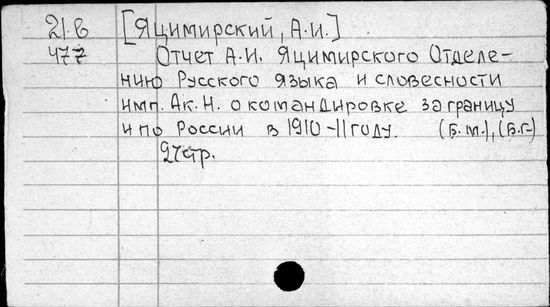 21.в [Яцимирский, А.И.]
477 Отчет А.И. Яцимирского Отделе-
нию Русского языка и словесности
имп. Ак. Н. о командировке за границу
и по России в 1910-11 году. (Б.м.), (Б.г.)
27 стр.